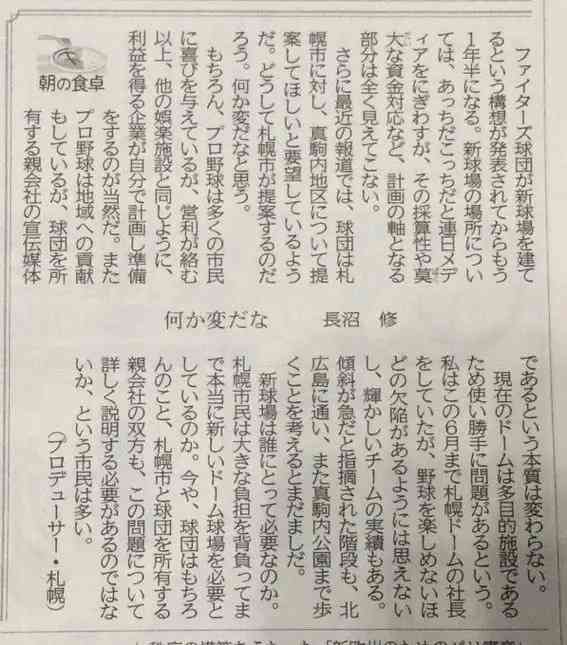 朝の食卓
何か変だな　長沼　修
ファイターズ球団が新球場を建て
るという構想が発表されてからもう
1年半になる。新球場の場所につい
ては、あっちだこっちだと連日メデ
ィアをにぎわすが、その採算性や莫
大な資金対応など、計画の軸となる
部分は全く見えてこない。
さらに最近の報道では、球団は札
幌市に対し、真駒内地区について提
案してほしいと要望しているよう
だ。どうして札幌市が提案するのだ
ろう。何か変だなと思う。
もちろん、プロ野球は多くの市民
に喜びを与えているが、営利が絡む
以上、他の娯楽施設と同じように、
利益を得る企業が自分で計画し準備
をするのが当然だ。また
プロ野球は地域への貢献
もしているが、球団を所
有する親会社の宣伝媒体
であるという本質は変わらない。
現在のドームは多目的施設である
ため使い勝手に問題があるという。
私はこの6月まで札幌ドームの社長
をしていたが、野球を楽しめないほ
どの欠陥があるようには思えない
し、輝かしいチームの実績もある。
傾斜が急だと指摘された階段も、北
広島に通い、また真駒内公園まで歩
くことを考えるとまだましだ。
新球場は誰にとって必要なのか。
札幌市民は大きな負担を背負ってま
で本当に新しいドーム球場を必要と
しているのか。今や、球団はもちろ
んのこと、札幌市と球団を所有する
親会社の双方も、この問題について
詳しく説明する必要があるのではな
いか、という市民は多い。
（プロデューサー・札幌）